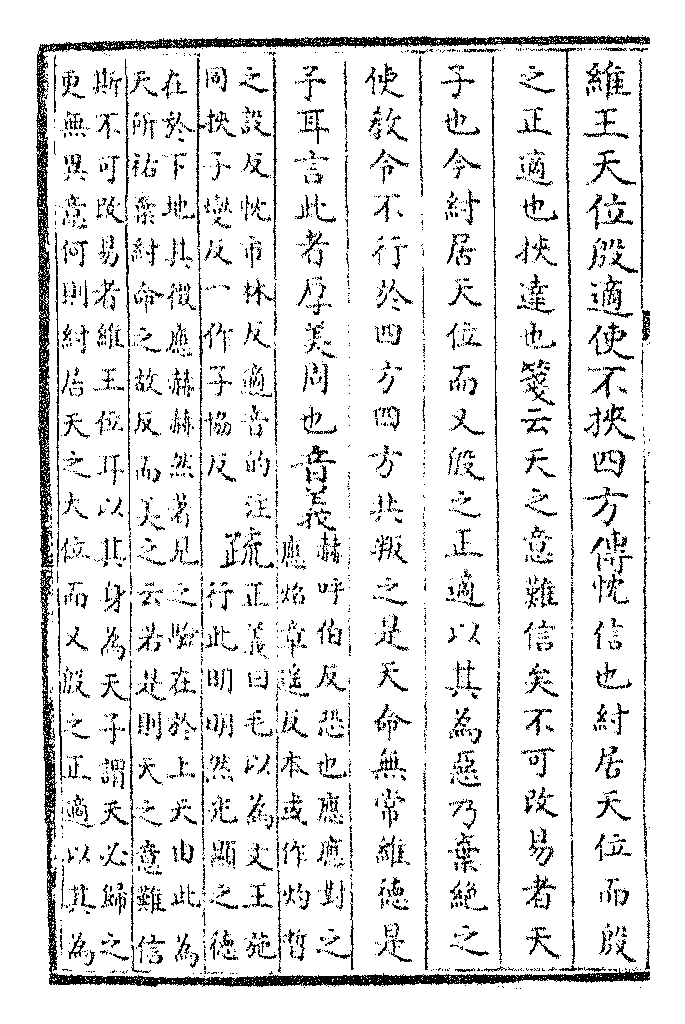 維王天位殷適使不挾四方傳忱信也紂居天位而殷
之正適也挾達也箋云天之意難信矣不可改易者天
子也今紂居天位而又殷之正適以其為惡乃棄絶之
使教令不行於四方四方共叛之是天命無常維德是
予耳言此者厚美周也音義
赫呼伯反恐也應應對之
應焰章遥反本或作灼晢
之設反忱市林反適音的注
同挾子燮反一作子協反
疏
正義曰毛以為文王施
行此明明然光顯之德
在於下地其徴應赫赫然著見之驗在於上天由此為
天所祐棄紂命之故反而美之云若是則天之意難信
斯不可改易者維王位耳以其身為天子謂天必歸之
更無異意何則紂居天之大位而又殷之正適以其為